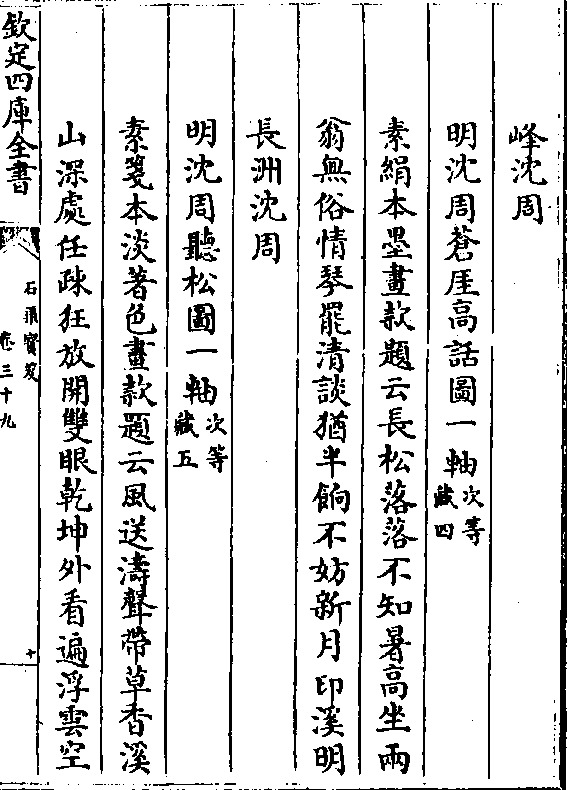 峰沈周
明沈周蒼厓高話圖一軸次等藏四
素絹本墨畫款題云長松落落不知暑高坐兩
翁無俗情琴罷清談猶半餉不妨新月印溪明
長洲沈周
明沈周聽松圖一軸次等藏五
素箋本淡著色畫款題云風送濤聲帶草香溪
山深處任疎狂放開雙眼乾坤外看遍浮雲空
欽定四庫全書
石渠寶笈
卷三十九
十